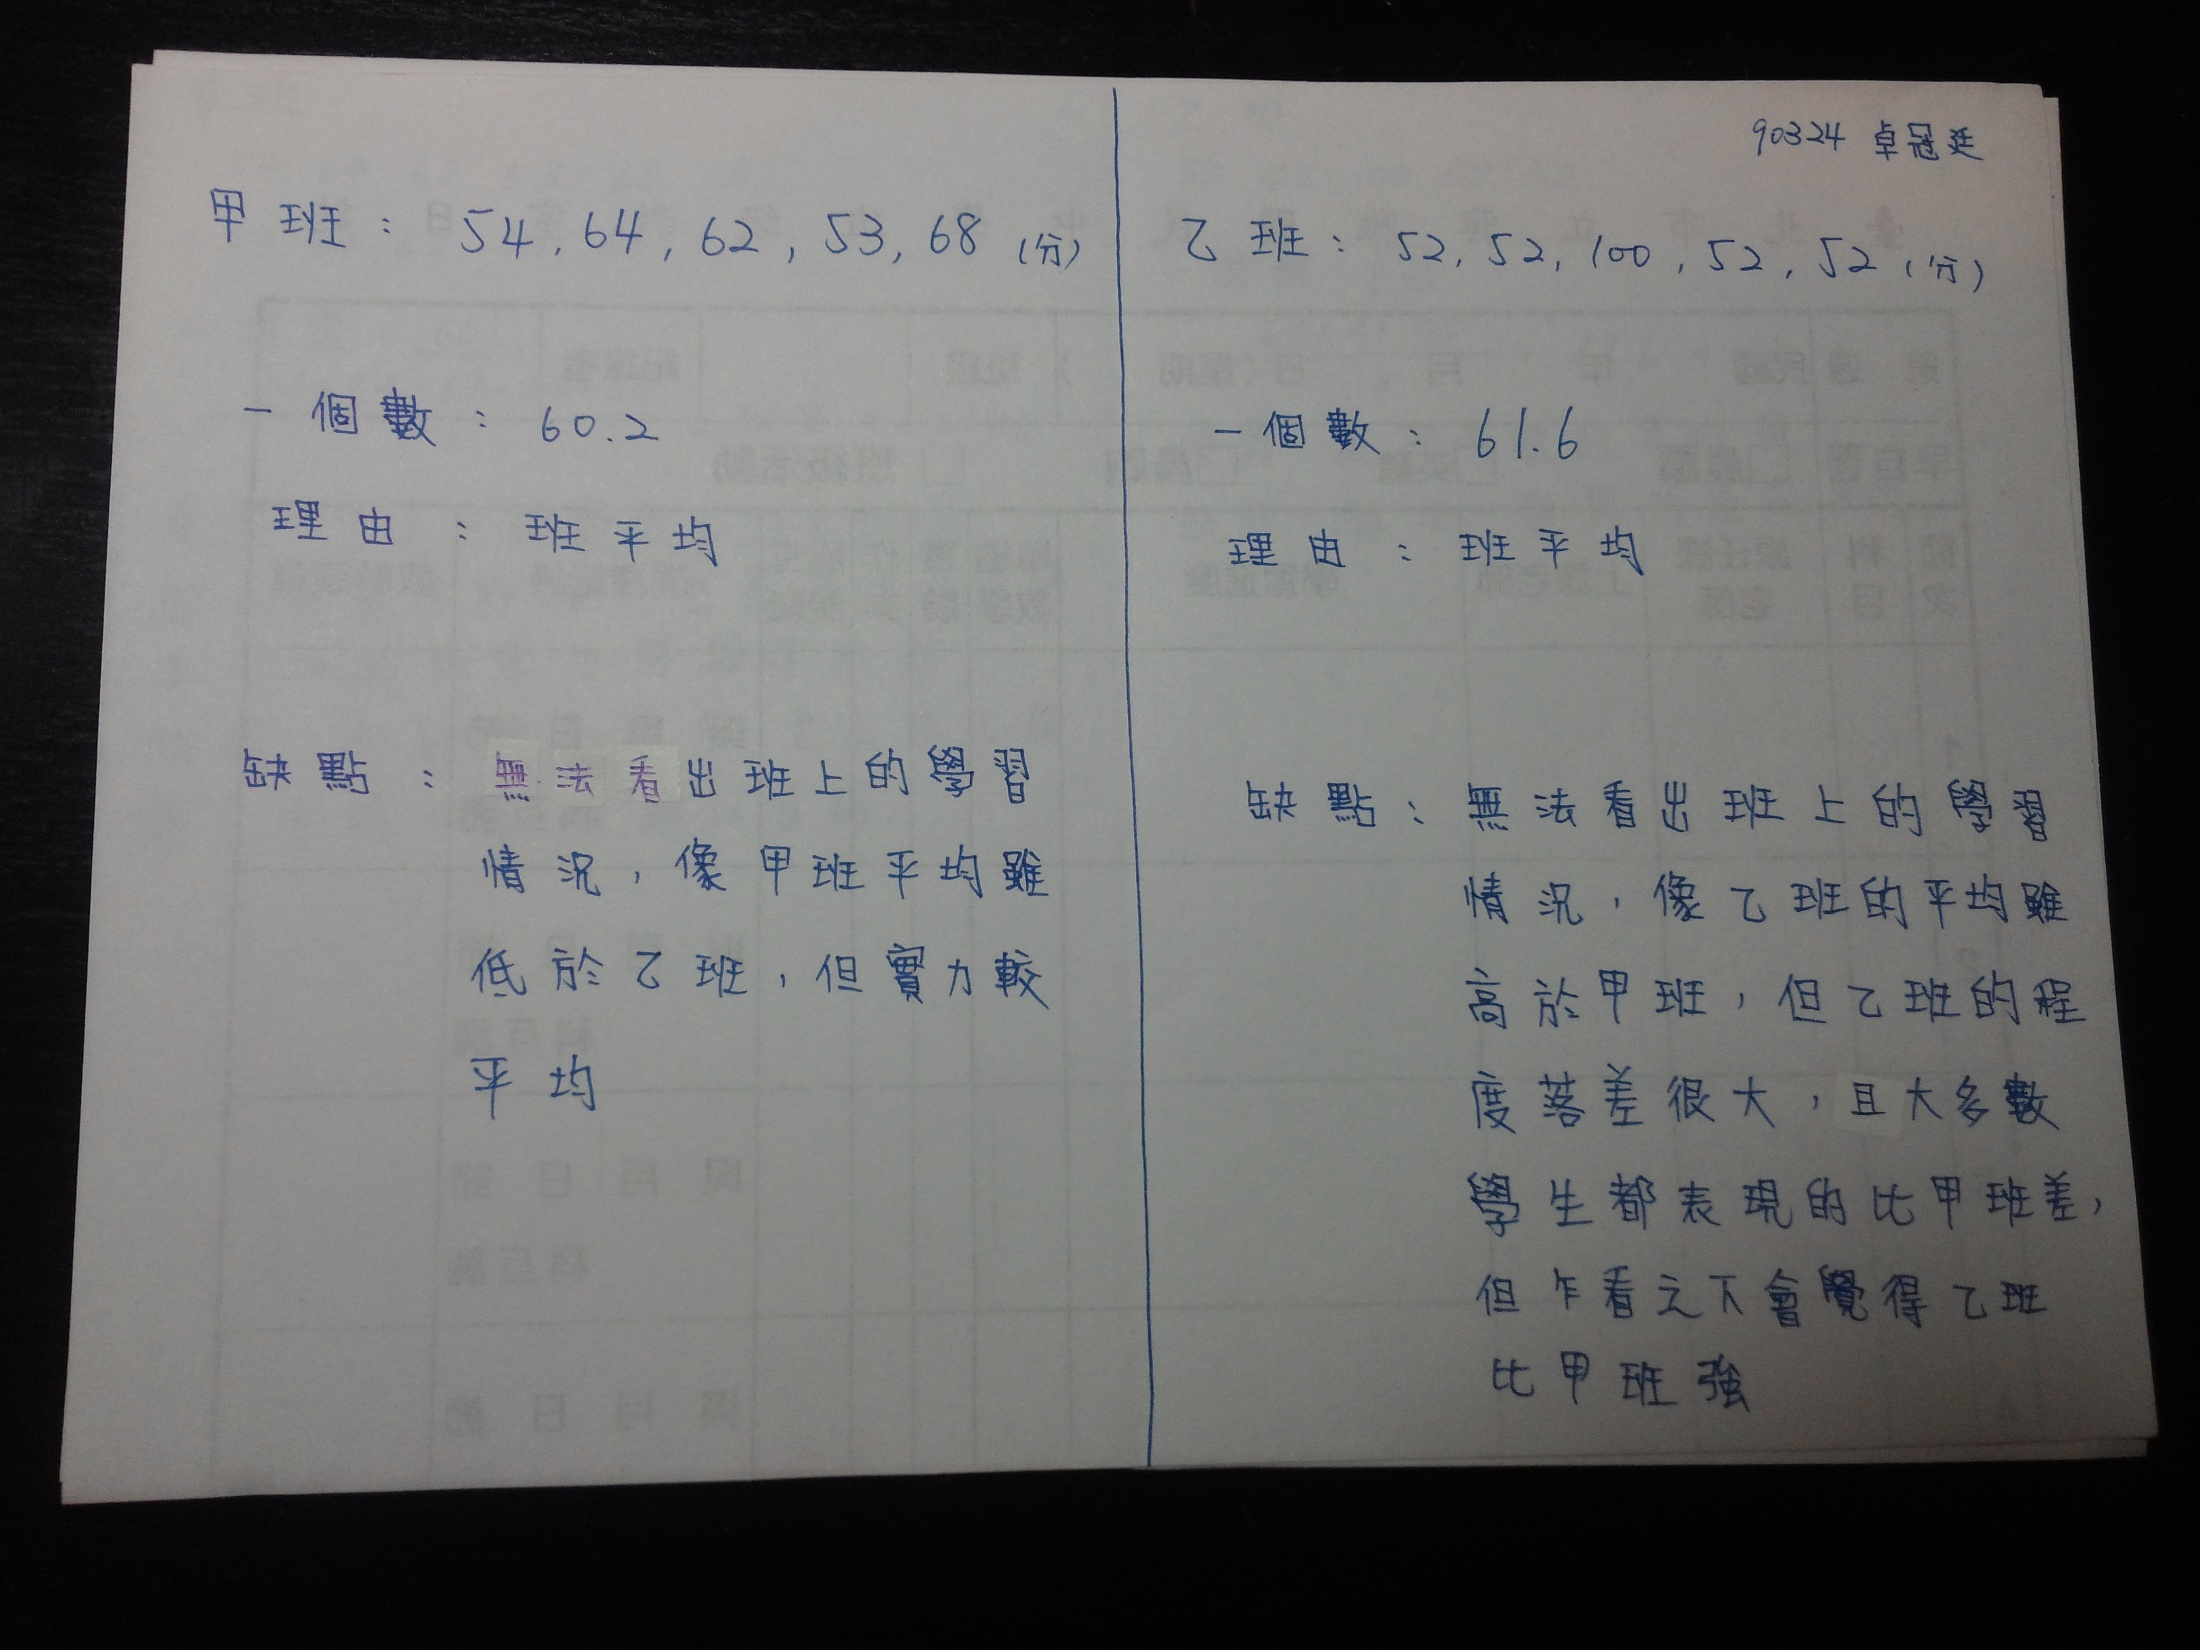 90324 卓冠廷
甲班：54, 64, 62, 53, 68 (分)
一個數：60.2
理由：班平均
缺點：無法看出班上的學習
情況，像甲班平均雖
低於乙班，但實力較
平均
乙班：52, 52, 100, 52, 52 (分)
一個數：61.6
理由：班平均
缺點：無法看出班上的學習
情況，像乙班的平均雖
高於甲班，但乙班的程
度落差很大，且大多數
學生都表現的比甲班差，
但乍看之下會覺得乙班
比甲班強